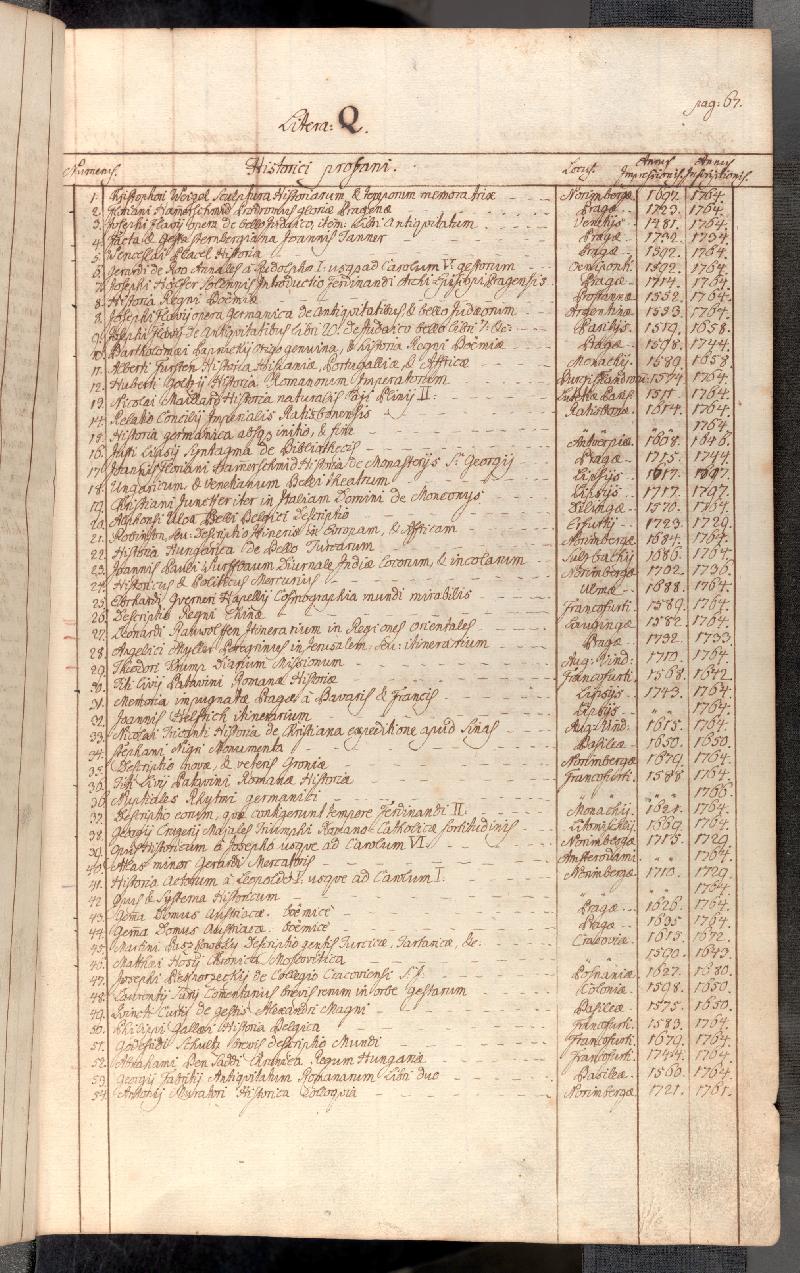 pag: 67.
Littera: Q.
Numerus. Historici profani. Locus. Annus Impressionis. Annus Inscriptionis.
1. Christophori Weigel Sculptura Historiarum, & temporum memoratrix Norimbergæ 1697. 1764.
2. Floriani Hamerschmid Prodromus gloriæ Pragenæ Pragæ 1723. 1764.
3. Josephi Flavij opera de bello Judaico, item: Libri Antiquitatum Venetijs 1481. 1764.
4. Facta & Gesta Sternbergiana Joannis Tanner Pragæ 1732. 1734.
5. Wenceslai Placel Historia Pragæ 1592. 1764.
6. Gerardi de Roo Annales à Rudolpho I. usq; ad Carolum V. gestorum Oeniponti 1592. 1764.
7. Josephi Höffer Solennis Introductio Ferdinandi Archi-Episcopi Pragensis Pragæ 1714. 1764.
8. Historia Regni Boëmiæ Prostannæ 1552. 1764.
8. Josephi Flavij opera Germanica de Antiquitatibus, & bello Judæorum Argentinæ 1553. 1764.
9. Josephi Flavij de Antiquitatibus Libri 20. de Judaico bello Libri 7. &c: Parisijs 1519. 1658.
10. Bartholomæi Paprockij origo genuina, & Historia Regni Boëmiæ Pragæ 1598. 1744.
11. Alberti Fursten Historia Hispaniæ, Portugalliæ, & Africæ Monachij 1589. 1658.
12. Huberti Goltzij Historia Romanorum Imperatorum 1574 1764.
13. Nicolai Maillard Historia naturalis Caji Plinij II: 1511 1764.
14. Relatio Concilij Imperialis Ratisbonensis Ratisbonæ 1614. 1764.
15. Historia germanica absq; initio, & fine 1764.
16. Justi Lipsij Syntagma de Bibliothecis Antverpiæ 1608. 1646.
17. Joannis Floriani Hamerschmid Historia de Monasterijs S: Georgij Pragæ 1715. 1744.
18. Ungaricum & Venetianum Belli theatrum Lipsijs 1617. 1697.
19. Christiani Juncker iter in Italiam Domini de Monconys Lipsijs 1717. 1797.
20. Alphonsi Uloa Belli Belgici Descriptio Dilingæ 1570. 1764.
21. Robinson, seu: Descriptio Itineris in Europam, & Africam Erfurtij 1723. 1729.
22. Historia Hungarica de Bello Turcarum Norimbergæ 1684. 1764.
23. Joannis Pauli Wurffbaum Diurnale Indiæ Locorum, & incolarum Sulzbachij 1686. 1764.
24. Historicus & Politicus Mercurius Norimbergæ 1702. 1736.
25. Eberhardi Gverneri Hapelij Cosmographia mundi mirabilis Ulmæ 1688. 1764.
26. Descriptio Regni Chinæ Francofurti. 1589. 1764.
27. Leonardi Rauwolffen Itinerarium in Regiones orientales Lauingæ 1582. 1764.
28. Angelici Myller Peregrinus in Jerusalem, seu: itinerarium Pragæ 1732. 1733.
29. Theodori Krump Diarium Missionum Aug: Vind: 1710. 1764.
30. Titi Livij Patavini Romanæ Historiæ Francofurti. 1568. 1642.
31. Memoria impugnatæ Pragæ à Bavaris & Francis Lipsijs 1743. 1764.
32. Joannis Helfrich itinerarium Lipsijs " " 1764.
33. Nicolai Tricanti Historia de Christiana expeditione apud Sinas Aug: Vind: 1615. 1764.
34. Stephani Nigri Monumenta Basileæ 1650. 1650.
35. Descriptio novæ, & veteris Groniæ Norimbergæ 1679. 1764.
36. Titi Livij Patavini Romanæ Historia Francofurti. 1588 1764.
36. Nuptiales Rhytmi germanici " " " " 1766.
37. Descriptio eorum, quæ contigerunt tempore Ferdinandi II: Monachij 1621. 1764.
38. Georgij Crugerij Majales Triumphi Romano-Catholicæ fortitudinis Litomischlij 1669. 1764.
39. Opus Historicum à Josepho usque ad Carolum VI. Norimbergæ 1715. 1729.
40. Atlas minor Gerardi Mercatoris Amsterodami " " 1764.
41. Historia Actorum à Leopoldo I. usque ad Carolum I. Norimbergæ 1710. 1729.
42. Opus & Systema Historicum " " " " 1764.
43. Gema Domus Austriacæ. boëmicè Pragæ 1626. 1764.
44. Gema Domus Austriacæ. boëmicè Pragæ 1695 1764.
45. Martini Paszkowsky Descriptio gentis Turcicæ, Tartaricæ, &c. Cracoviæ 1615. 1672.
46. Matthæi Hosij Chronica Moscovitica 1590. 1643.
47. Josephi de Collegio Cracoviensi S.J. Posnaniæ 1627. 1680.
48. Laurentij Surij Comentarius brevis rerum in orbe gestarum Coloniæ 1598. 1650.
49. Quincti Curtij de gestis Alexandri Magni Basileæ 1575. 1650.
50. Philippi Gallæi Historia Belgica Francofurti. 1583. 1764.
51. Godefridi Schultz brevis descriptio Mundi Francofurti. 1679. 1764.
52. Abrahami Ben Saddi Chronica Regum Hungariæ Francofurti. 1744. 1764.
53. Georgij Fabritij Antiquitatum Romanarum Libri duo Basileæ 1560. 1764.
54. Antonij Muratori Historica Colloquia Norimbergæ 1721. 1761.